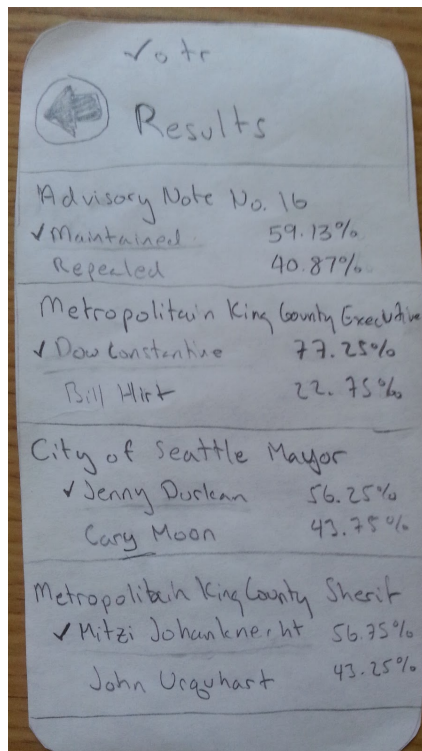 Votr
Results
Advisory Note No. 16
✓ Maintained 59.13%
Repealed 40.87%
Metropolitain King County Executive
✓ Dow Constantine 77.25%
Bill Hirt 22.75%
City of Seattle Mayor
✓ Jenny Durkan 56.25%
Cary Moon 43.75%
Metropolitain King County Sherif
✓ Mitzi Johanknecht 56.75%
John Urquhart 43.25%